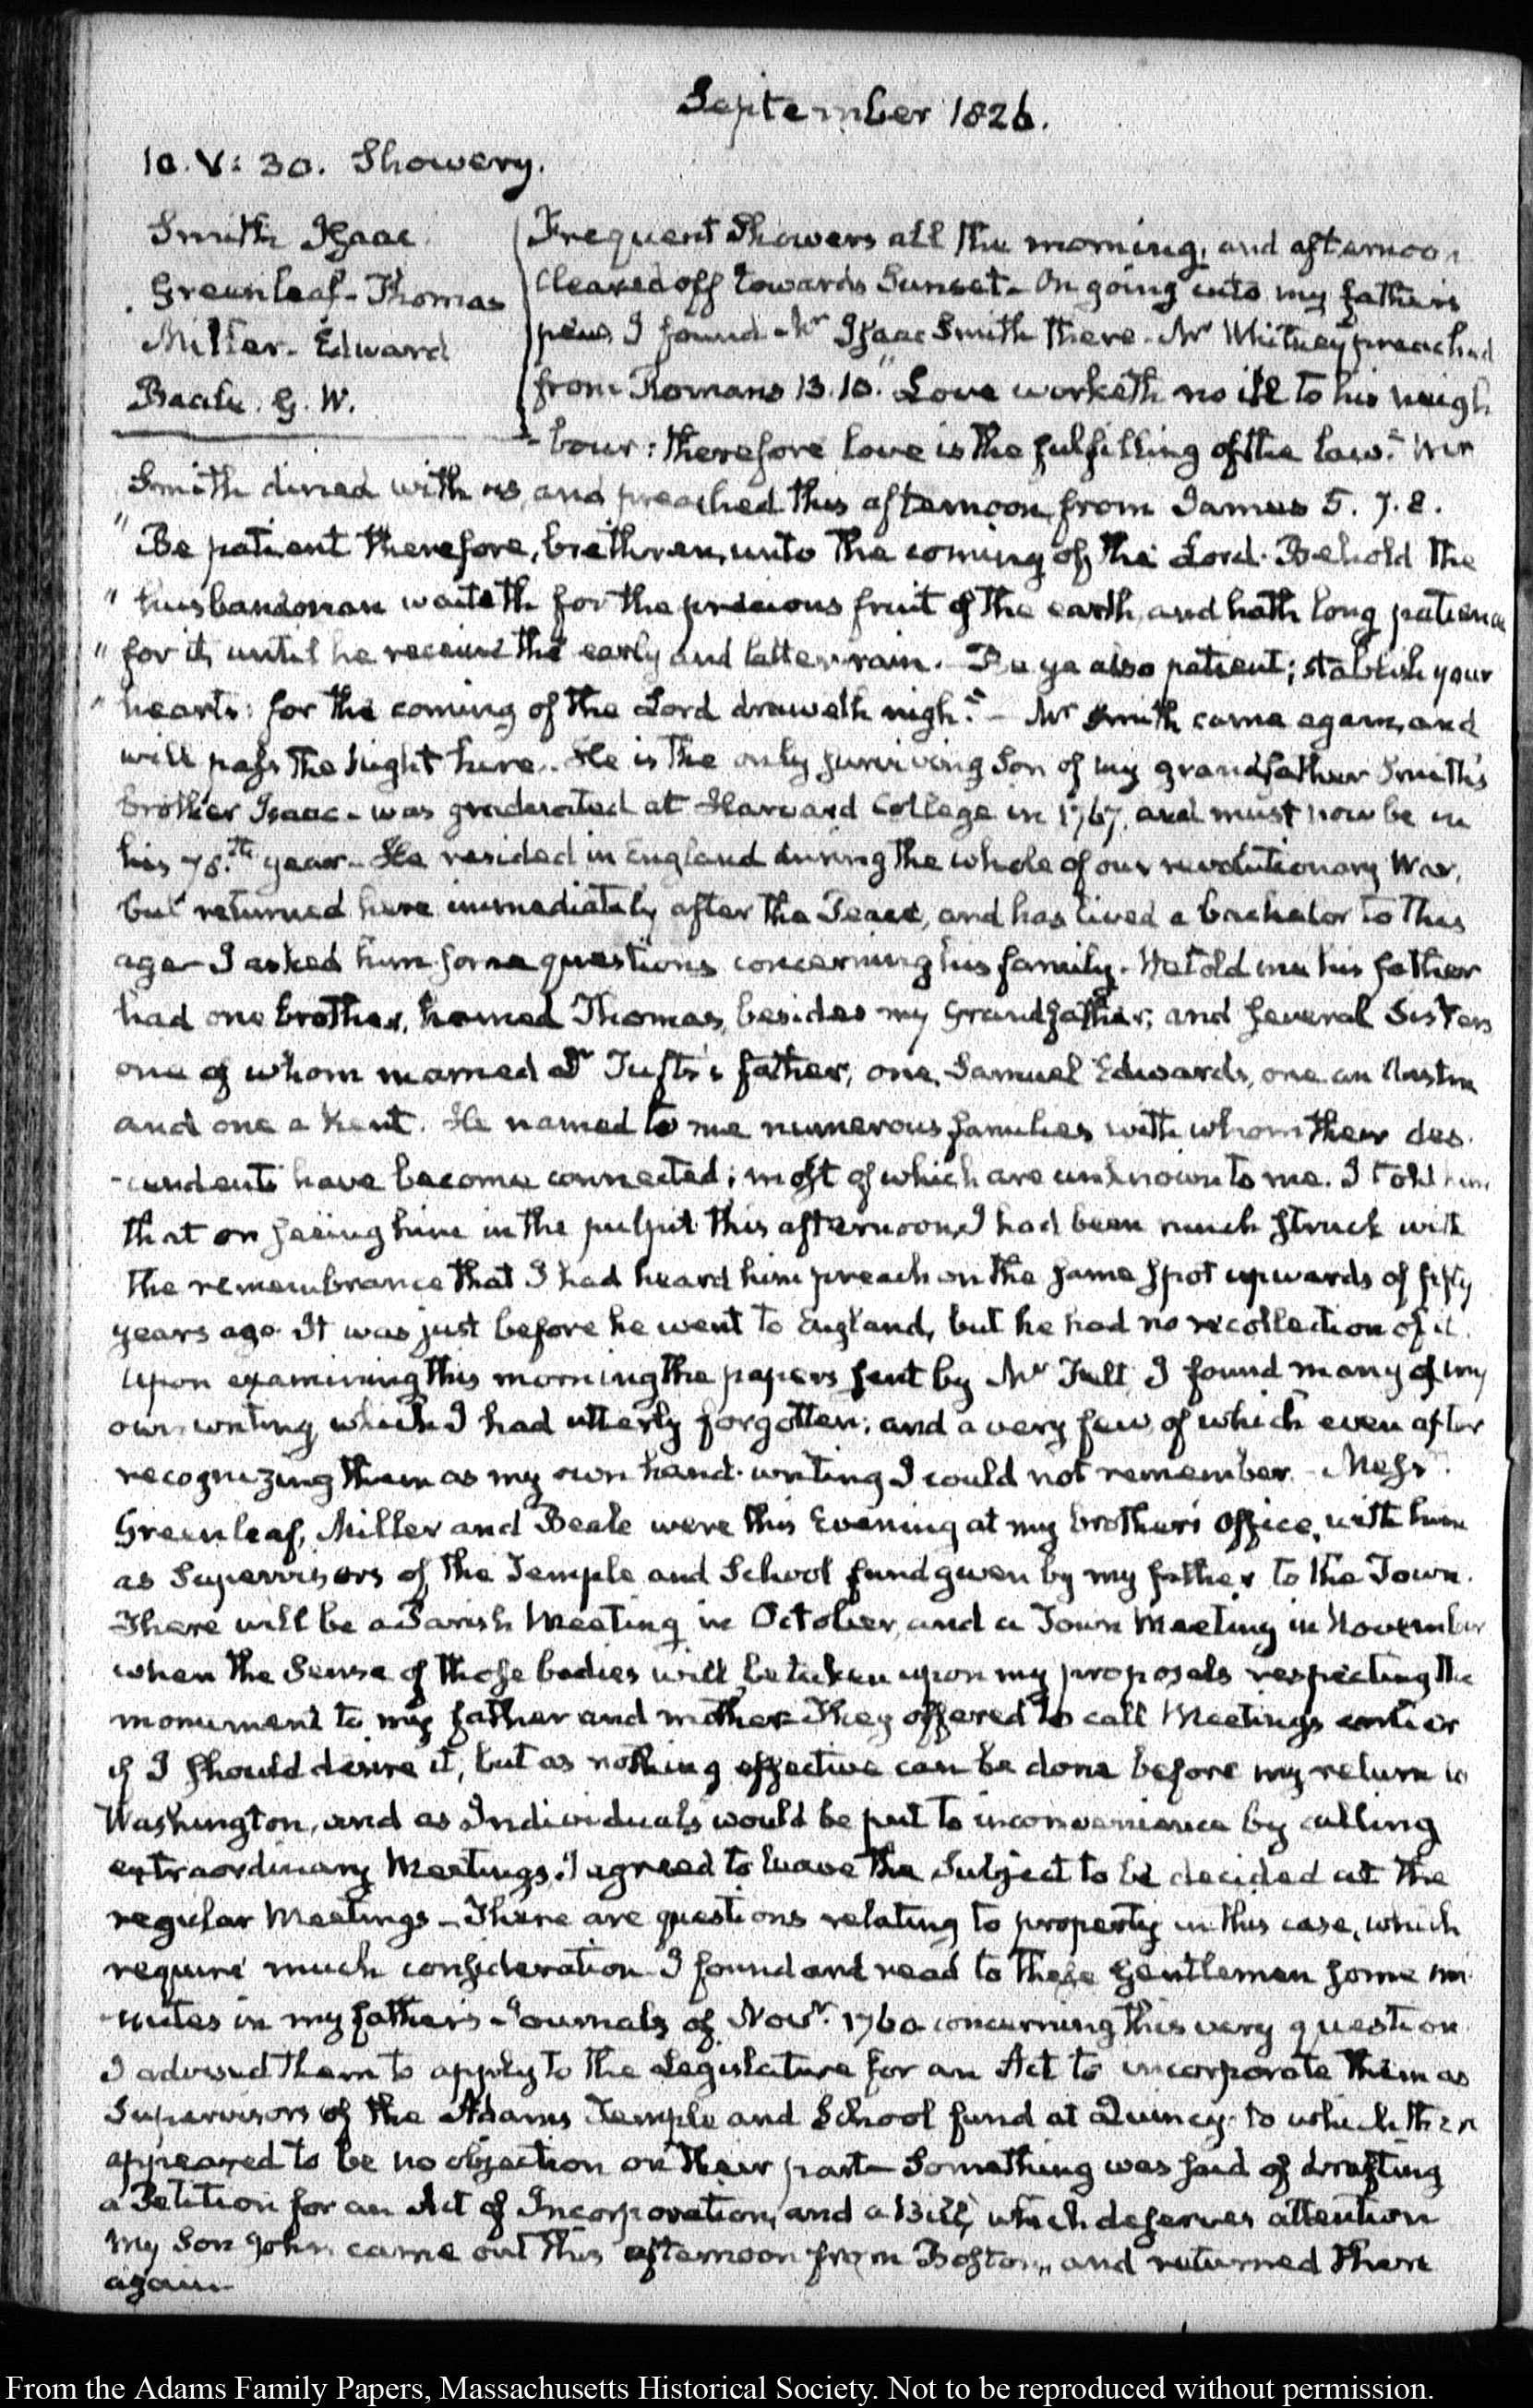 September 1826.
10. V: 30. Showery.
Smith Isaac
Greenleaf-Thomas
Miller-Edward
Beale. G. W.
Frequent Showers all the morning, and afternoon
Cleared off towards Sunset- On going into my father's
pew, I found Mr Isaac Smith there- Mr Whitney preached
from Romans 13.10. "Love worketh no ill to his neigh
-bour: therefore love is the fulfilling of the law." Mr
Smith dined with us, and preached this afternoon, from James 5. 7. 8.
"Be patient therefore, brethren, unto the coming of the Lord. Behold the
"husbandman waiteth for the precious fruit of the earth, and hath long patience
"for it, until he receive the early and latter rain. Be ye also patient; stablish your
"hearts: for the coming of the Lord draweth nigh."- Mr Smith came again, and
will pass the Night here. He is the only surviving Son of my grandfather Smith's
brother Isaac- was graduated at Harvard College in 1767, and must now be in
his 78.th year- He resided in England during the whole of our revolutionary War,
but returned here immediately after the Peace, and has lived a bachelor to this
age- I asked him some questions concerning his family. He told me his father
had one brother, named Thomas, besides my Grandfather; and several Sisters
one of whom married Dr Tufts's father, one, Samuel Edwards, one an Austin
and one a Kent. He named to me numerous families with whom their des-
-cendents have become connected; most of which are unknown to me. I told him
that on seeing him in the pulpit this afternoon, I had been much struck with
the remembrance that I had heard him preach on the same spot upwards of fifty
years ago. It was just before he went to England, but he had no recollection of it.
Upon examining this morning the papers sent by Mr Telt I found many of my
own writing which I had utterly forgotten; and a very few, of which even after
recognizing them as my own hand-writing I could not remember- Messrs
Greenleaf, Miller and Beale were this Evening at my brother's Office, with him
as Supervisors of the Temple and School fund given by my father to the Town.
There will be a Parish Meeting in October, and a Town Meeting in November
when the Sense of those bodies will be taken upon my proposals respecting the
monument to my father and mother- They offered to call Meetings earlier
if I should desire it, but as nothing effective can be done before my return to
Washington, and as Individuals would be put to inconvenience by calling
extraordinary Meetings, I agreed to leave the Subject to be decided at the
regular Meetings- There are questions relating to property in this case, which
require much consideration- I found and read to these Gentlemen some mi-
-nutes in my father's Journals of Novr. 1760 concerning this very question
I advised them to apply to the Legislature for an Act to incorporate them as
Supervisors of the Adams Temple and School fund at Quincy- to which there
appeared to be no objection on their part- Something was said of drafting
a Petition for an Act of Incorporation, and a Bill, which deserves attention
My Son John came out this afternoon from Boston, and returned there
again-
From the Adams Family Papers, Massachusetts Historical Society. Not to be reproduced without permission.